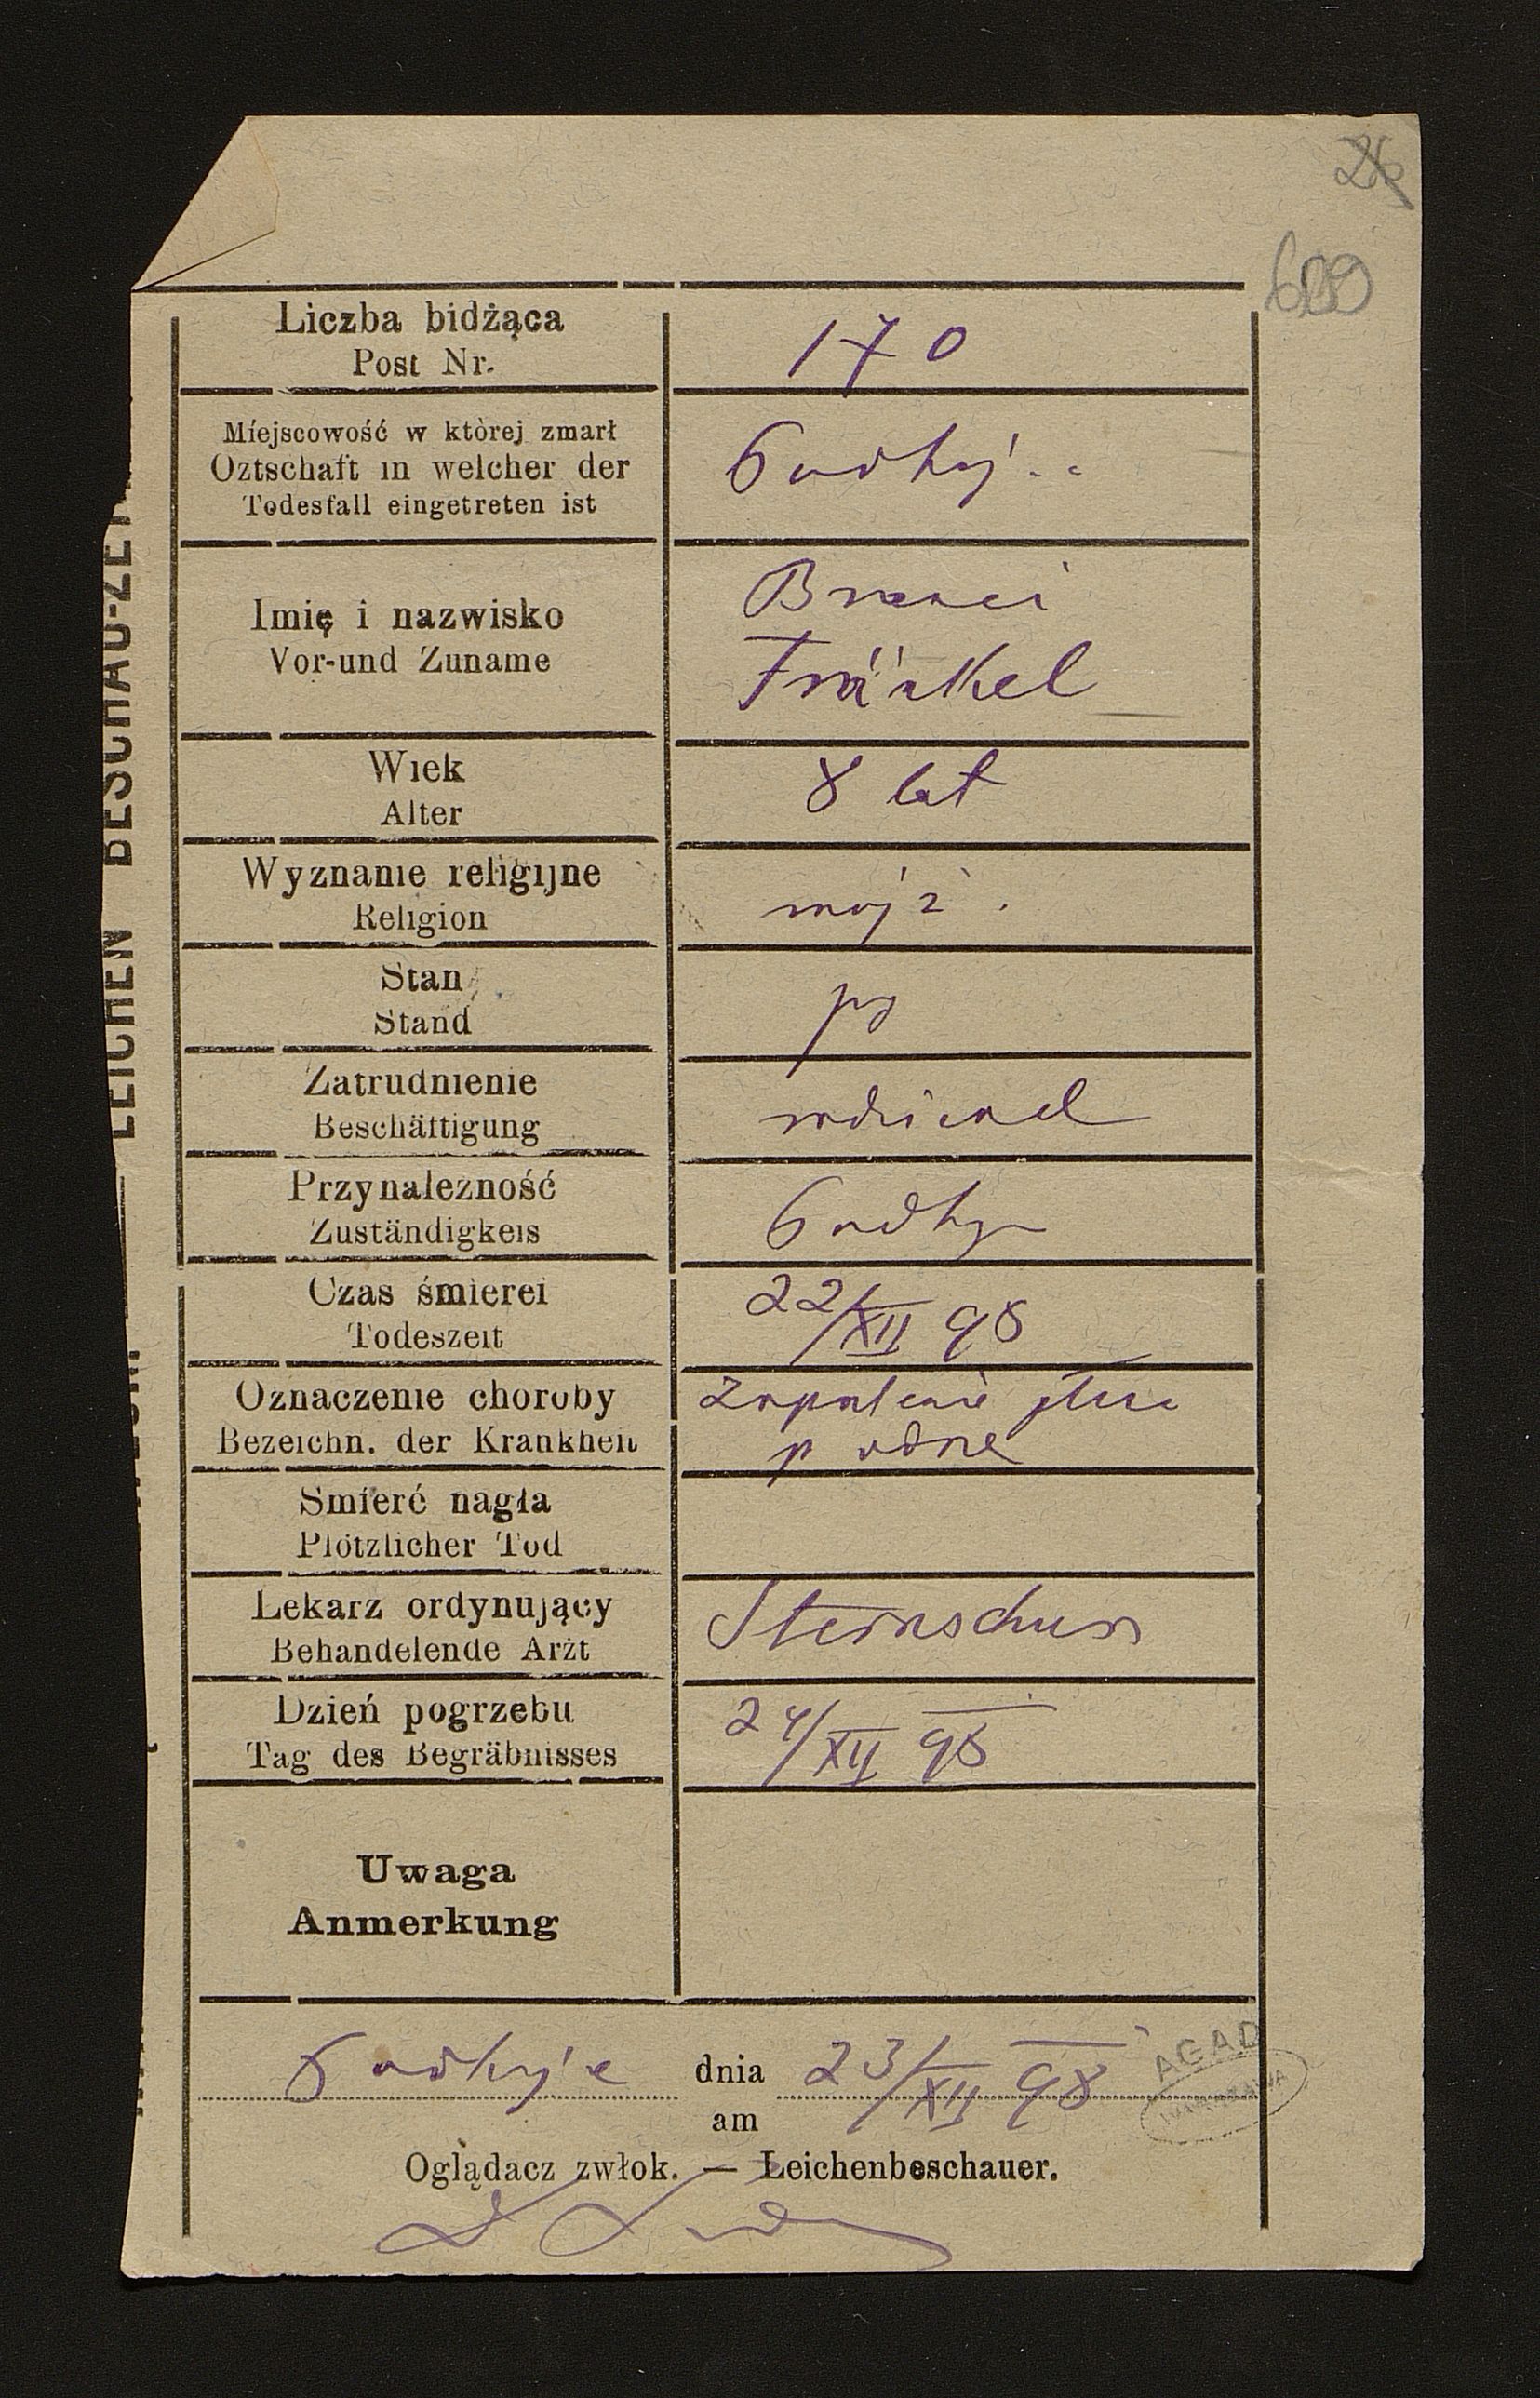 26
609
LEICHEN BESCHAU-ZET
Liczba bidżąca
Post Nr.
170
Miejscowość w której zmarł
Oztschaft in welcher der
Todesfall eingetreten ist
Imię i nazwisko
Vor-und Zuname
Fränkel
Wiek
Alter
8 lat
Wyznanie religijne
Religion
mojż.
Stan
Stand
Zatrudnienie
Beschäftigung
Przynależność
Zuständigkeis
Czas śmierei
Todeszeit
22/XII 98
Oznaczenie choroby
Bezeichn. der Krankheit
Zapalenie płuc
Smierć nagła
Plötzlicher Tod
Lekarz ordynujący
Behandelende Arzt
Dzień pogrzebu
Tag des Begräbnisses
24/XII 98
Uwaga
Anmerkung
dnia 23/XII 98
am
AGAD
WARSZAWA
Oglądacz zwłok. — Leichenbeschauer.